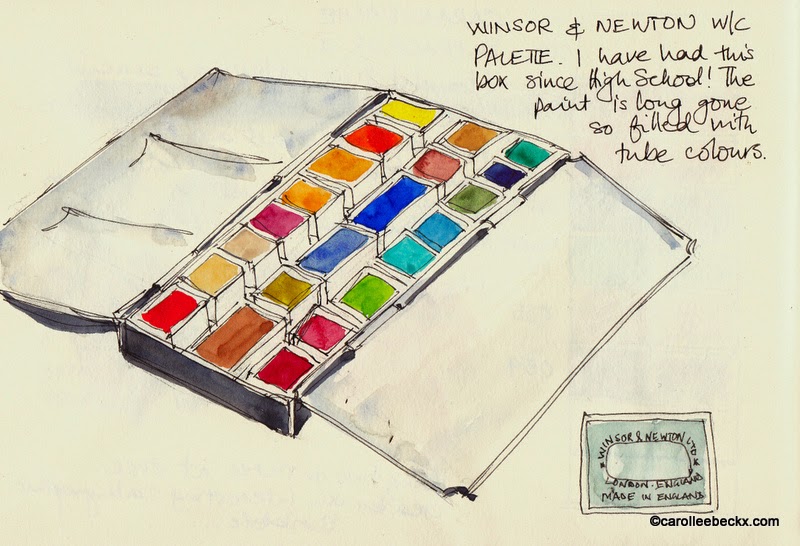 WINSOR & NEWTON W/C
PALETTE. I have had this
box since High School! The
paint is long gone
so filled with
tube colours.
WINSOR & NEWTON LTD
LONDON · ENGLAND
MADE IN ENGLAND
©carolleebeckx.com